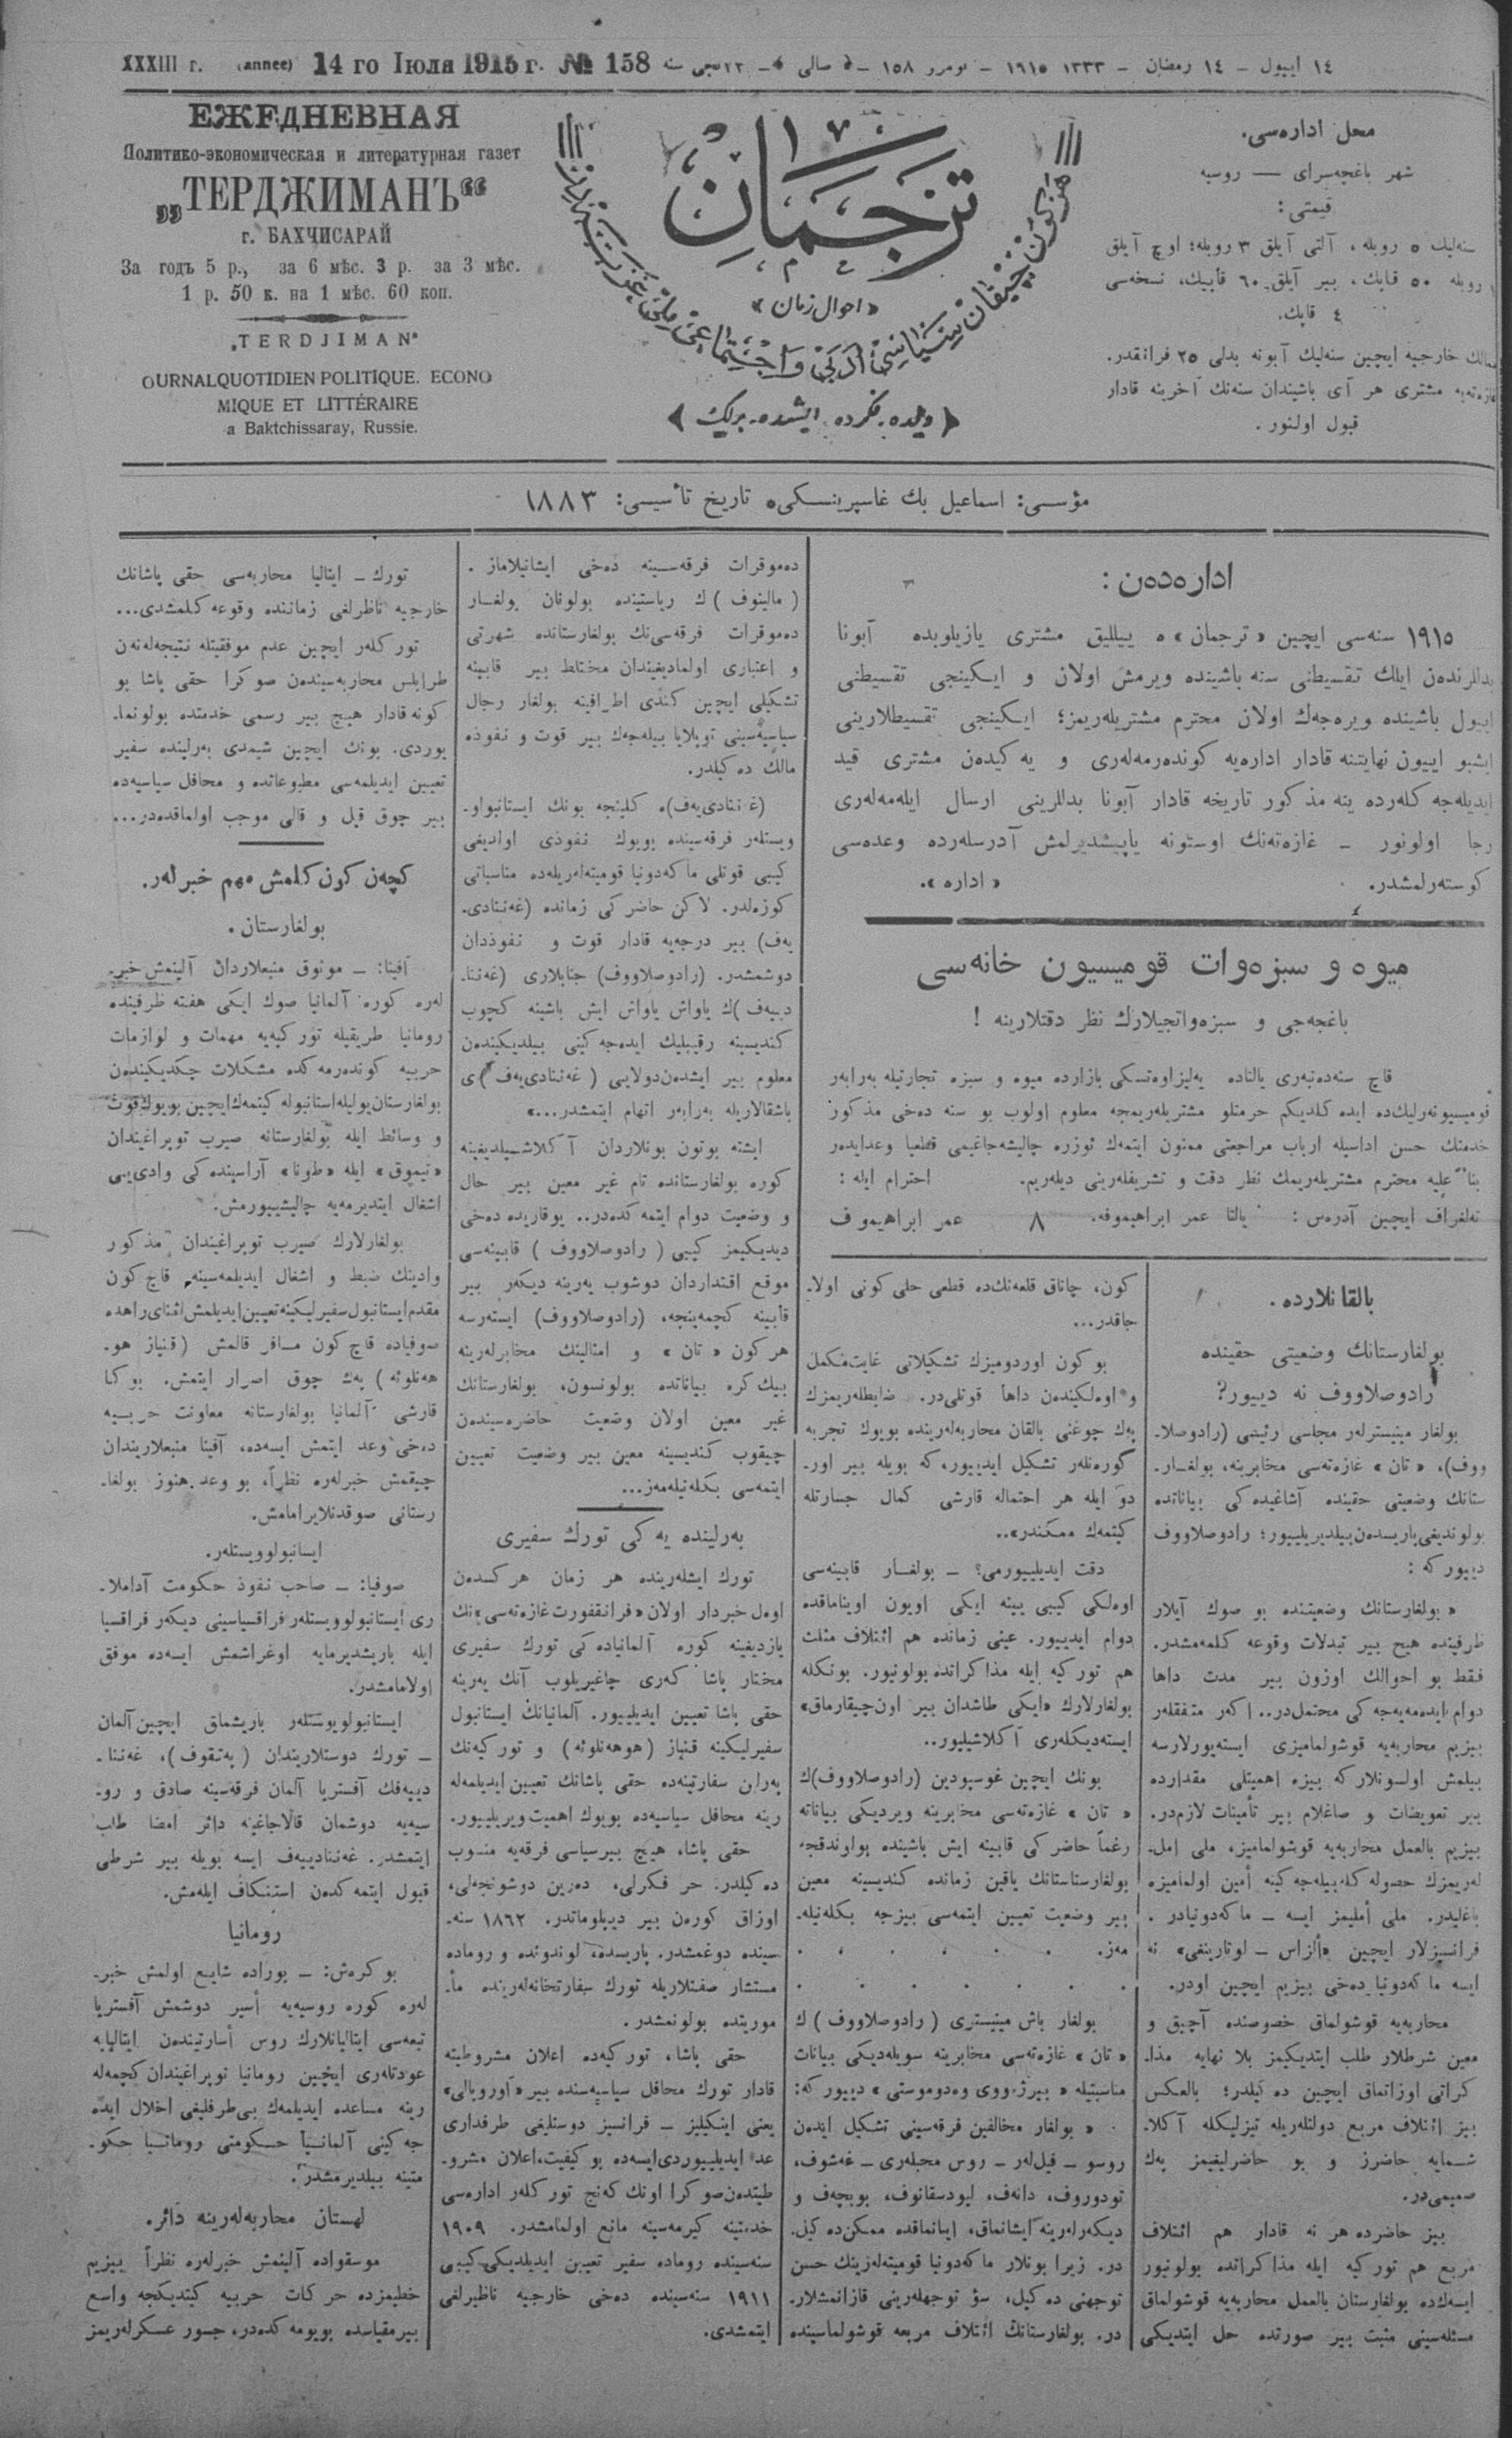 XXXIII г. (annee) 14 го Іюля 1915 г. № 158
١٤ اییول ــ ١٤ رمضان ــ ١٣٣٣ ــ ١٩١٥ ــ نومرو ١٥٨
ЕЖЕДНЕВНАЯ
Политико-экономическая и литературная газет
„ТЕРДЖИМАНЪ“
г. БАХЧИСАРАЙ
За годъ 5 р., за 6 мѣс. 3 р. за 3 мѣс.
1 р. 50 к. на 1 мѣс. 60 коп.
„TERDJIMAN“
OURNALQUOTIDIEN POLITIQUE. ECONO
MIQUE ET LITTÉRAIRE
a Baktchissaray, Russie.
ترجمان
«احوال زمان»
هر كون چیقان سیاسی، ادبی و اجتماعی ملی غزته‌در
﴿دیلده، فكرده، ایشده، برلك﴾
محل اداره‌سی.
شهر باغچه‌سرای — روسیه
قیمتی:
سنه‌لیك ٥ روبله، آلتی آیلق ٣ روبله؛ اوچ آیلق
روبله ٥٠ قاپك، بیر آیلق ٦٠ قاپیك، نسخه‌سی
٤ قاپك.
ممالك خارجیه ایچین سنه‌لیك آبونه بدلی ٢٥ فرانقدر.
غازه‌ته‌یه مشتری هر آی باشیندان سنه‌نك آخرینه قادار
قبول اولنور.
مؤسسی: اسماعیل بك غاسپرینسكی، تاریخ تأسیسی: ١٨٨٣
اداره‌دن:
١٩١٥ سنه‌سی ایچین «ترجمان» ه ییللیق مشتری یازیلوبده آبونا
بدللرندن ایلك تقسیطنی سنه باشینده ویرمش اولان و ایكینجی تقسیطنی
اییول باشینده ویره‌جه‌ك اولان محترم مشتریله‌ریمز؛ ایكینجی تقسیطلارینی
ایشبو اییون نهایتنه قادار اداره‌یه كونده‌رمه‌له‌ری و یه كیدن مشتری قید
ایدیله‌جه كلرده ینه مذكور تاریخه قادار آبونا بدللرینی ارسال ایله‌مه‌له‌ری
رجا اولونور ــ غازه‌ته‌نك اوستونه یاپیشدیرلمش آدرسله‌رده وعده‌سی
كوسته‌رلمشدر. «اداره».
میوه و سبزه‌وات قومیسیون خانه‌سی
باغچه‌جی و سبزه‌واتجیلارك نظر دقتلارینه!
قاچ سنه‌دنبه‌ری یالتاده یه‌لیزاوه‌تسكی بازارده میوه و سبزه تجارتیله به‌رابه‌ر
قومیسیونه‌رلیك‌ده ایده كلدیكم حرمتلو مشتریله‌ریمجه معلوم اولوب بو سنه ده‌خی مذكور
خدمتك حسن اداسیله ارباب مراجعتی ممنون ایتمه‌ك ئوزره چالیشه‌جاغیمی قطعیا وعدایده‌ر
بناً علیه محترم مشتریله‌ریمك نظر دقت و تشریفله‌رینی دیله‌ریم. احترام ایله:
ته‌لغراف ایچین آدره‌س: یالتا عمر ابراهیموفه. ٨ عمر ابراهیموف
بالقانلارده.
بولغارستانك وضعیتی حقینده
رادوصلاووف نه دییور؟
بولغار مینیسترلر مجلسی رئیسی (رادوصلا-
ووف)، «تان» غازه‌ته‌سی مخابرینه، بولغار-
ستانك وضعیتی حقینده آشاغیده‌كی بیاناتده
بولوندیغی پاریسدن بیلدیریلییور؛ رادوصلاووف
دییور كه:
«بولغارستانك وضعیتنده بو صوك آیلار
ظرفینده هیچ بیر تبدلات وقوعه كلمه‌مشدر.
فقط بو احوالك اوزون بیر مدت داها
دوام ایده‌مه‌یه‌جه‌كی محتمل‌در.. اكر متفقلر
بیزیم محاربه‌یه قوشولمامیزی ایسته‌یورلارسه
بیلمش اولسونلار كه بیزه اهمیتلی مقدارده
بیر تعویضات و صاغلام بیر تأمینات لازم‌در.
بیزیم بالعمل محاربه‌یه قوشولمامیز، ملی امل-
له‌ریمزك حصوله كله‌بیله‌جه‌كینه أمین اولمامیزه
باغلیدر. ملی أملیمز ایسه ــ ماكه‌دونیادر.
فرانسیزلار ایچین «الزاس ــ لوتارینغی» نه
ایسه ماكه‌دونیا ده‌خی بیزیم ایچین اودر.
محاربه‌یه قوشولماق خصوصنده آچیق و
معین شرطلار طلب ایتدیكیمز بلا نهایه مذا-
كراتی اوزاتماق ایچین ده‌كیلدر؛ بالعكس
بیز ائتلاف مربع دولتله‌ریله تیزلیكله آكلا-
شمایه حاضرز و بو حاضرلیغیمز پك
صمیمی‌در.
بیز حاضرده هر نه قادار هم ائتلاف
مربع هم توركیه ایله مذاكراتده بولونیور
ایسه‌ك‌ده بولغارستان بالعمل محاربه‌یه قوشولماق
مسئله‌سینی مثبت بیر صورتده حل ایتدیكی
كون، چاناق قلعه‌نك‌ده قطعی حلی كونی اولا-
جاقدر...
بو كون اوردومیزك تشكیلاتی غایت مكمل
و اوله‌لكیندن داها قوتلی‌در. ضابطله‌ریمزك
پك چوغی بالقان محاربه‌له‌رینده بویوك تجربه
كوره‌نلر تشكیل ایدییور، كه بویله بیر اور-
دو ایله هر احتماله قارشی كمال جسارتله
كیتمه‌ك ممكندر»..
دقت ایدیلییورمی؟ ــ بولغار قابینه‌سی
اوه‌لكی كیبی یینه ایكی اویون اویناماقده
دوام ایدییور. عینی زمانده هم ائتلاف مثلث
هم توركیه ایله مذاكراتده بولونیور. بونكله
بولغارلارك «ایكی طاشدان بیر اون چیقارماق»
ایسته‌دیكله‌ری آكلاشیلیور..
بونك ایچین غوسپودین (رادوصلاووف)ك
«تان» غازه‌ته‌سی مخابرینه ویردیكی بیاناته
رغماً حاضركی قابینه ایش باشینده بولوندقجه
بولغارستانك یاقین زمانده كندیسینه معین
بیر وضعیت تعیین ایتمه‌سی بیزجه بكله‌نیله-
مه‌ز. . . . . .
بولغار باش مینیستری (رادوصلاووف)ك
«تان» غازه‌ته‌سی مخابرینه سویله‌دیكی بیانات
مناسبتیله «بیرژه‌ووی وه‌دوموستی» دییور كه:
«بولغار مخالفین فرقه‌سینی تشكیل ایدن
روسو ــ فیل‌لر ــ روس محبله‌ری ــ غه‌شوف،
تودوروف، دانه‌ف، لیودسقانوف، بوبچه‌ف و
دیكه‌رله‌رینه ایشانماق، اینانماقده ممكن ده‌كیل-
در. زیرا بونلار ماكه‌دونیا قومیته‌له‌رینك حسن
توجهنی ده‌كیل، سؤ توجهله‌رینی قازانمشلار-
در. بولغارستانك ائتلاف مربعه قوشولماسینده
ده‌موقرات فرقه‌سینه ده‌خی ایشانیلاماز.
(مالینوف)ك ریاستینده بولونان بولغار
ده‌موقرات فرقه‌سی‌نك بولغارستانده شهرتی
و اعتباری اولمادیغیندان مختلط بیر قابینه
تشكیلی ایچین كندی اطرافینه بولغار رجال
سیاسیه‌سینی توپلایا بیله‌جه‌ك بیر قوت و نفوذه
مالك ده‌كیلدر.
(غه‌ننادی‌یه‌ف)ه كلینجه بونك ایستانبولو-
ویستلر فرقه‌سینده بویوك نفوذی اولدیغی
كیبی قوتلی ماكه‌دونیا قومیته‌له‌ریله‌ده مناسباتی
كوزه‌لدر. لاكن حاضركی زمانده (غه‌ننادی-
یه‌ف) بیر درجه‌یه قادار قوت و نفوذدان
دوشمشدر. (رادوصلاووف) جنابلاری (غه‌ننا-
دییه‌ف)ك یاواش یاواش ایش باشینه كچوب
كندیسینه رقیبلیك ایده‌جه‌كینی بیلدیكیندن
معلوم بیر ایشدن دولایی (غه‌ننادی‌یه‌ف)ی
باشقالاریله به‌رابر اتهام ایتمشدر...»
ایشته بوتون بونلاردان آكلاشیلدیغینه
كوره بولغارستانده تام غیر معین بیر حال
و وضعیت دوام ایتمه‌كده‌در.. یوقاریده ده‌خی
دیدیكیمز كیبی (رادوصلاووف) قابینه‌سی
موقع اقتداردان دوشوب یه‌رینه دیكر بیر
قابینه كچمه‌ینجه، (رادوصلاووف) ایسترسه
هر كون «تان» و امثالینك مخابرله‌رینه
بیك كره بیاناتده بولونسون، بولغارستانك
غیر معین اولان وضعیت حاضره‌سیندن
چیقوب كندیسینه معین بیر وضعیت تعیین
ایتمه‌سی بكله‌نیله‌مه‌ز...
به‌رلینده یه‌كی تورك سفیری
تورك ایشله‌رینده هر زمان هر كسدن
اوه‌ل خبردار اولان «فرانقفورت غازه‌ته‌سی»نك
یازدیغینه كوره آلمانیاده‌كی تورك سفیری
مختار پاشا كری چاغیریلوب آنك یه‌رینه
حقی پاشا تعیین ایدیلییور. آلمانیانك ایستانبول
سفیرلیكینه قنیاز (هوهه‌نلوئه) و توركیه‌نك
به‌رلین سفارتینه‌ده حقی پاشانك تعیین ایدیلمه‌له-
رینه محافل سیاسیه‌ده بویوك اهمیت ویریلییور.
حقی پاشا، هیچ بیر سیاسی فرقه‌یه منسوب
ده‌كیلدر. حر فكرلی، ده‌رین دوشونجه‌لی،
اوزاق كورن بیر دیپلوماتدر. ١٨٦٢ سنه-
سینده دوغمشدر. پاریسده، لوندونده و روماده
مستشار صفتلاریله تورك سفارتخانه‌له‌رنده مأ-
موریتده بولونمشدر.
حقی پاشا، توركیه‌ده اعلان مشروطیته
قادار تورك محافل سیاسیه‌سنده بیر «آوروپالی»
یعنی اینكیلیز ــ فرانسیز دوستلیغی طرفداری
عد ایدیلییوردی ایسه‌ده بو كیفیت، اعلان مشرو-
طیتدن صوكرا اونك كنج توركلر اداره‌سی
خدمتینه كیرمه‌سینه مانع اولمامشدر. ١٩٠٩
سنه‌سینده روماده سفیر تعیین ایدیلدیكی كیبی
١٩١١ سنه‌سینده ده‌خی خارجیه ناظرلغی
ایتمشدی.
تورك ــ ایتالیا محاربه‌سی حقی پاشانك
خارجیه ناظرلغی زماننده وقوعه كلمشدی...
توركلر ایچین عدم موفقیتله نتیجه‌له‌نن
طرابلس محاربه‌سیندن صوكرا حقی پاشا بو
كونه قادار هیچ بیر رسمی خدمتده بولونما-
یوردی. بونك ایچین شیمدی به‌رلینده سفیر
تعیین ایدیلمه‌سی مطبوعاتده و محافل سیاسیه‌ده
بیر چوق قیل و قالی موجب اولماقده‌در...
كچن كون كلمش مهم خبرلر.
بولغارستان.
آفینا: ــ موثوق منبعلاردان آلینمش خبر-
له‌ره كوره آلمانیا صوك ایكی هفته ظرفینده
رومانیا طریقیله توركیه‌یه مهمات و لوازمات
حربیه كونده‌رمه‌كده مشكلات چكدیكیندن
بولغارستان یولیله استانبوله كیتمه‌ك ایچین بویوك قوت
و وسائط ایله بولغارستانه صیرب توپراغیندان
«تیموق» ایله «طونا» آراسینده‌كی وادی‌یی
اشغال ایتدیرمه‌یه چالیشییورمش.
بولغارلارك صیرب توپراغیندان مذكور
وادینك ضبط و اشغال ایدیلمه‌سینه قاچ كون
مقدم ایستانبول سفیرلیكینه تعیین ایدیلمش اثنای راهده
صوفیاده قاچ كون مسافر قالمش (قنیاز هو-
هه‌نلوئه) پك چوق اصرار ایتمش. بوكا
قارشی آلمانیا بولغارستانه معاونت حربیه
ده‌خی وعد ایتمش ایسه‌ده، آفینا منبعلاریندان
چیقمش خبرلره نظراً، بو وعد هنوز بولغا-
رستانی صوقدنلایرامامش.
ایستانبولوویستلر.
صوفیا: ــ صاحب نفوذ حكومت آداملا-
ری ایستانبولوویستلر فراقسیاسینی دیكر فراقسیا
ایله باریشدیرمایه اوغراشمش ایسه‌ده موفق
اولامامشدر.
ایستانبولوویستلر باریشماق ایچین آلمان
ــ تورك دوستلاریندان (په‌تقوف)، غه‌ننا-
دییه‌فك آفستریا آلمان فرقه‌سینه صادق و رو-
سیه‌یه دوشمان قالاجاغینه دائر امضا طلب
ایتمشدر. غه‌ننادییه‌ف ایسه بویله بیر شرطی
قبول ایتمه‌كدن استنكاف ایله‌مش.
رومانیا
بوكرش: ــ بوراده شایع اولمش خبر-
له‌ره كوره روسیه‌یه أسیر دوشمش آفستریا
تبعه‌سی ایتالیانلارك روس أسارتیندن ایتالیایه
عودتله‌ری ایچین رومانیا توپراغیندان كچمه‌له
رینه مساعده ایدیلمه‌ك بی‌طرفلیغی اخلال ایده
جه‌كینی آلمانیا حكومتی رومانیا حكو-
متینه بیلدیرمشدر.
لهستان محاربه‌له‌رینه دائر.
موسقواده آلینمش خبرلره نظراً بیزیم
خطیمزده حركات حربیه كیتدیكجه واسع
بیر مقیاسده بویومه‌كده‌در، جسور عسكرله‌ریمز